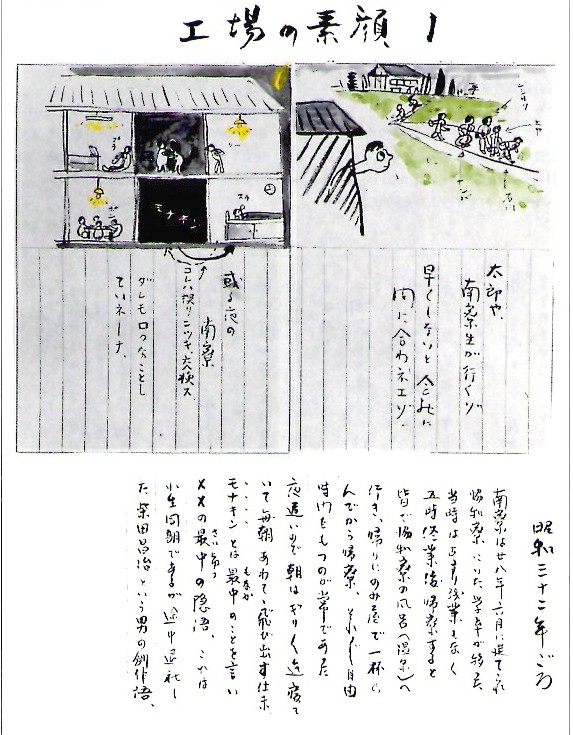 工場の素顔 1
太郎や、
南寮生が行くゾ
早くしないと会社に
間に合わネエゾ、
或る夜の
南寮
コレハ誤リニツキ、欠模ス
ダレモロクなことし
ていネーナ
モナキン
昭和三十二年ごろ
南寮は廿八年六月に建てられ
協和寮にいた学卒が移る、
当時はあまり残業もなく
五時終業後、帰寮すると
皆で協和寮の風呂(温泉)へ
行き、帰りにのみ屋で一杯
んでから帰寮、それぞれ自由
時間をもつのが常であった
夜遅いので朝はぎりぎり迄寝て
いて毎朝あわてて飛び出す仕末
モナキンとは最中のことを言い
XXの最中の隠語、これは
小生同期であるが途中退社し
た柴田昌治という男の創作語、